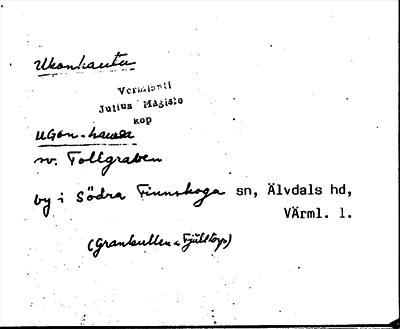 Ukonhauta
Vermlanti
Julius Mägiste
kop
Ugon-hauda
nv. Tollgraben
by i Södra Finnskoga sn, Älvdals hd,
Värml. l.
(Grankullen